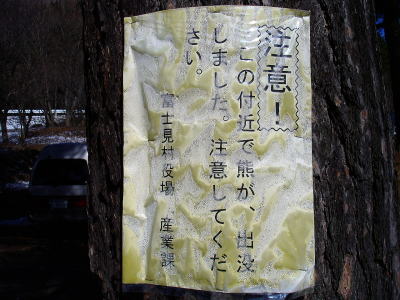 注意!
この付近で熊が、出没
しました。注意してくだ
さい。
富士見村役場 産業課